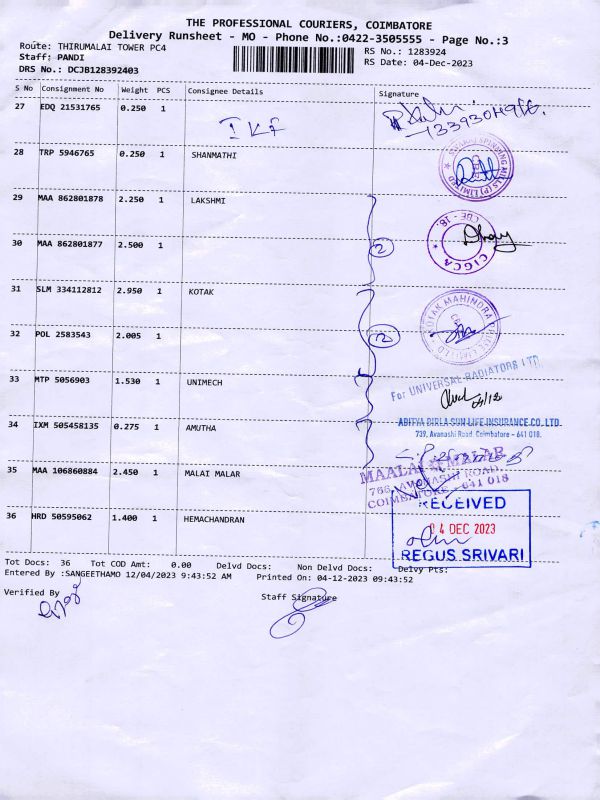 THE PROFESSIONAL COURIERS, COIMBATORE
Delivery Runsheet - MO - Phone No.:0422-3505555 - Page No.:3
Route: THIRUMALAI TOWER PC4
RS No.: 1283924
Staff: PANDI
RS Date: 04-Dec-2023
DRS No.: DCJB128392403
S No Consignment No Weight PCS Consignee Details Signature
27 EDQ 21531765 0.250 1 IKF
28 TRP 5946765 0.250 1 SHANMATHI
29 MAA 862801878 2.250 1 LAKSHMI
30 MAA 862801877 2.500 1 2
CIGCA
31 SLM 334112812 2.950 1 KOTAK
KOTAK MAHINDRA
32 POL 2583543 2.005 1 2
33 MTP 5056903 1.530 1 UNIMECH
For UNIVERSAL RADIATORS LTD.
34 IXM 505458135 0.275 1 AMUTHA
ADITYA BIRLA SUN LIFE INSURANCE CO. LTD.
739, Avanashi Road, Coimbatore - 641 018.
35 MAA 106860884 2.450 1 MALAI MALAR
MAALAI MALAR
766, AVINASHI ROAD,
COIMBATORE - 641 018
36 HRD 50595062 1.400 1 HEMACHANDRAN
RECEIVED
04 DEC 2023
REGUS SRIVARI
Tot Docs: 36 Tot COD Amt: 0.00 Delvd Docs: Non Delvd Docs: Delvy Pts:
Entered By :SANGEETHAMO 12/04/2023 9:43:52 AM Printed On: 04-12-2023 09:43:52
Verified By
Staff Signature